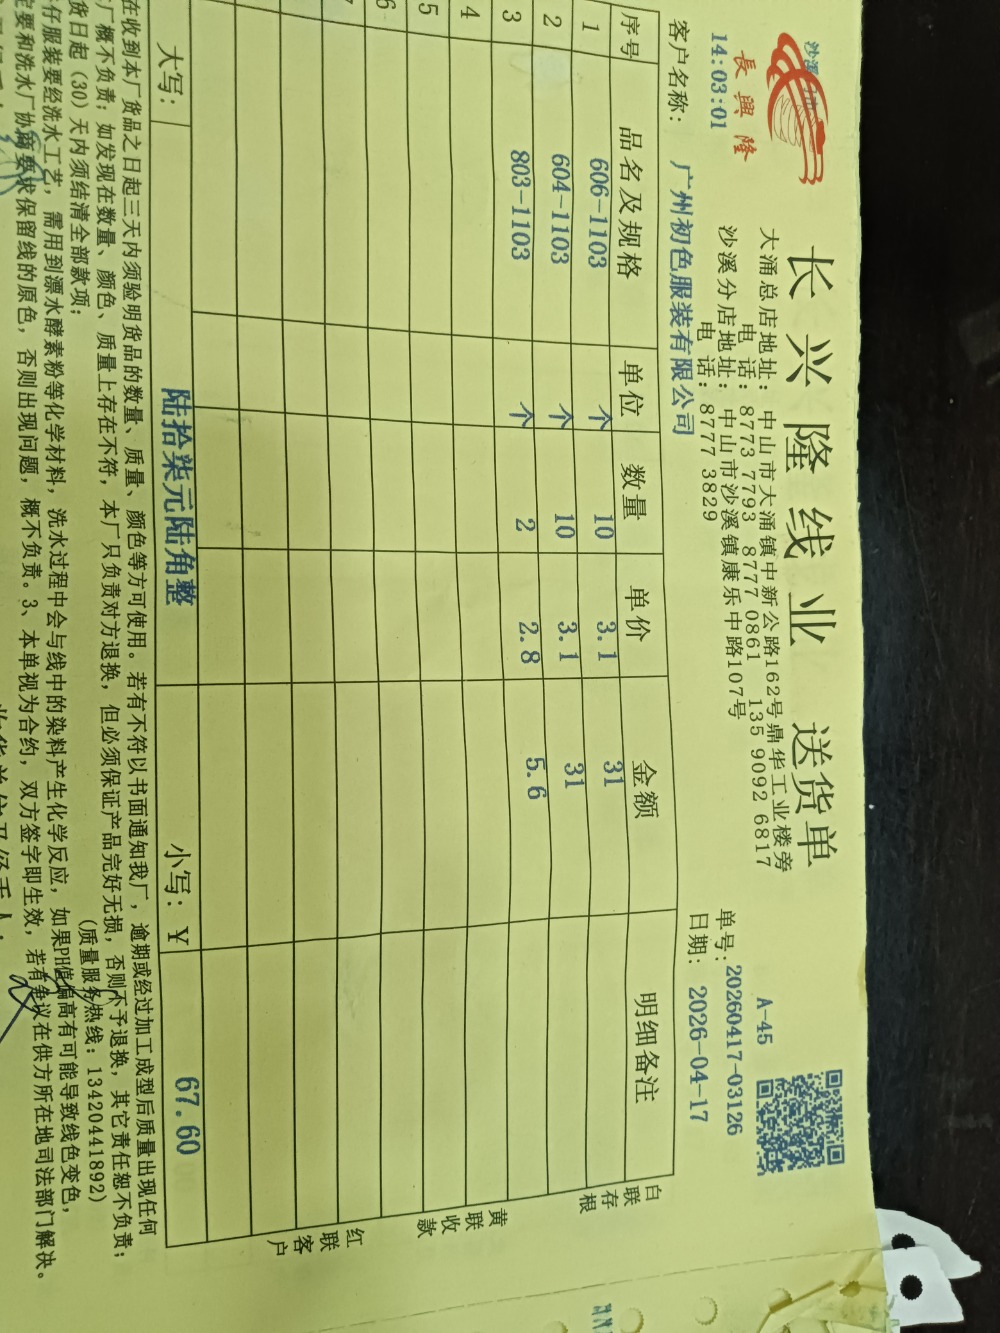 长兴隆线业 送货单
長興隆
大涌总店地址：中山市大涌镇中新公路162号鼎华工业楼旁
电 话：8773 7793 8777 0861 135 9092 6817
沙溪分店地址：中山市沙溪镇康乐中路107号
电 话：8777 3829
A-45
单号：20260417-03126
日期：2026-04-17
14:03:01
客户名称：广州初色服装有限公司
序号 品名及规格 单位 数量 单价 金额 明细备注
1 606-1103 个 10 3.1 31
2 604-1103 个 10 3.1 31
3 803-1103 个 2 2.8 5.6
4
5
6
7
大写：陆拾柒元陆角整 小写：¥ 67.60
白联存根
黄联收款
红联客户
在收到本厂货品之日起三天内须验明货品的数量、质量、颜色等方可使用。若有不符以书面通知我厂，逾期或经过加工成型后质量出现任何
厂概不负责；如发现在数量、颜色、质量上存在不符，本厂只负责对方退换，但必须保证产品完好无损，否则不予退换，其它责任恕不负责；
货日起（30）天内须结清全部款项；
(质量服务热线：13420441892)
仔服装要经洗水工艺，需用到漂水酵素粉等化学材料，洗水过程中会与线中的染料产生化学反应，如果PH值偏高有可能导致线色变色，
定要和洗水厂协商要求保留线的原色，否则出现问题，概不负责。3、本单视为合约，双方签字即生效，若有争议在供方所在地司法部门解决。
收货单位及经手人：